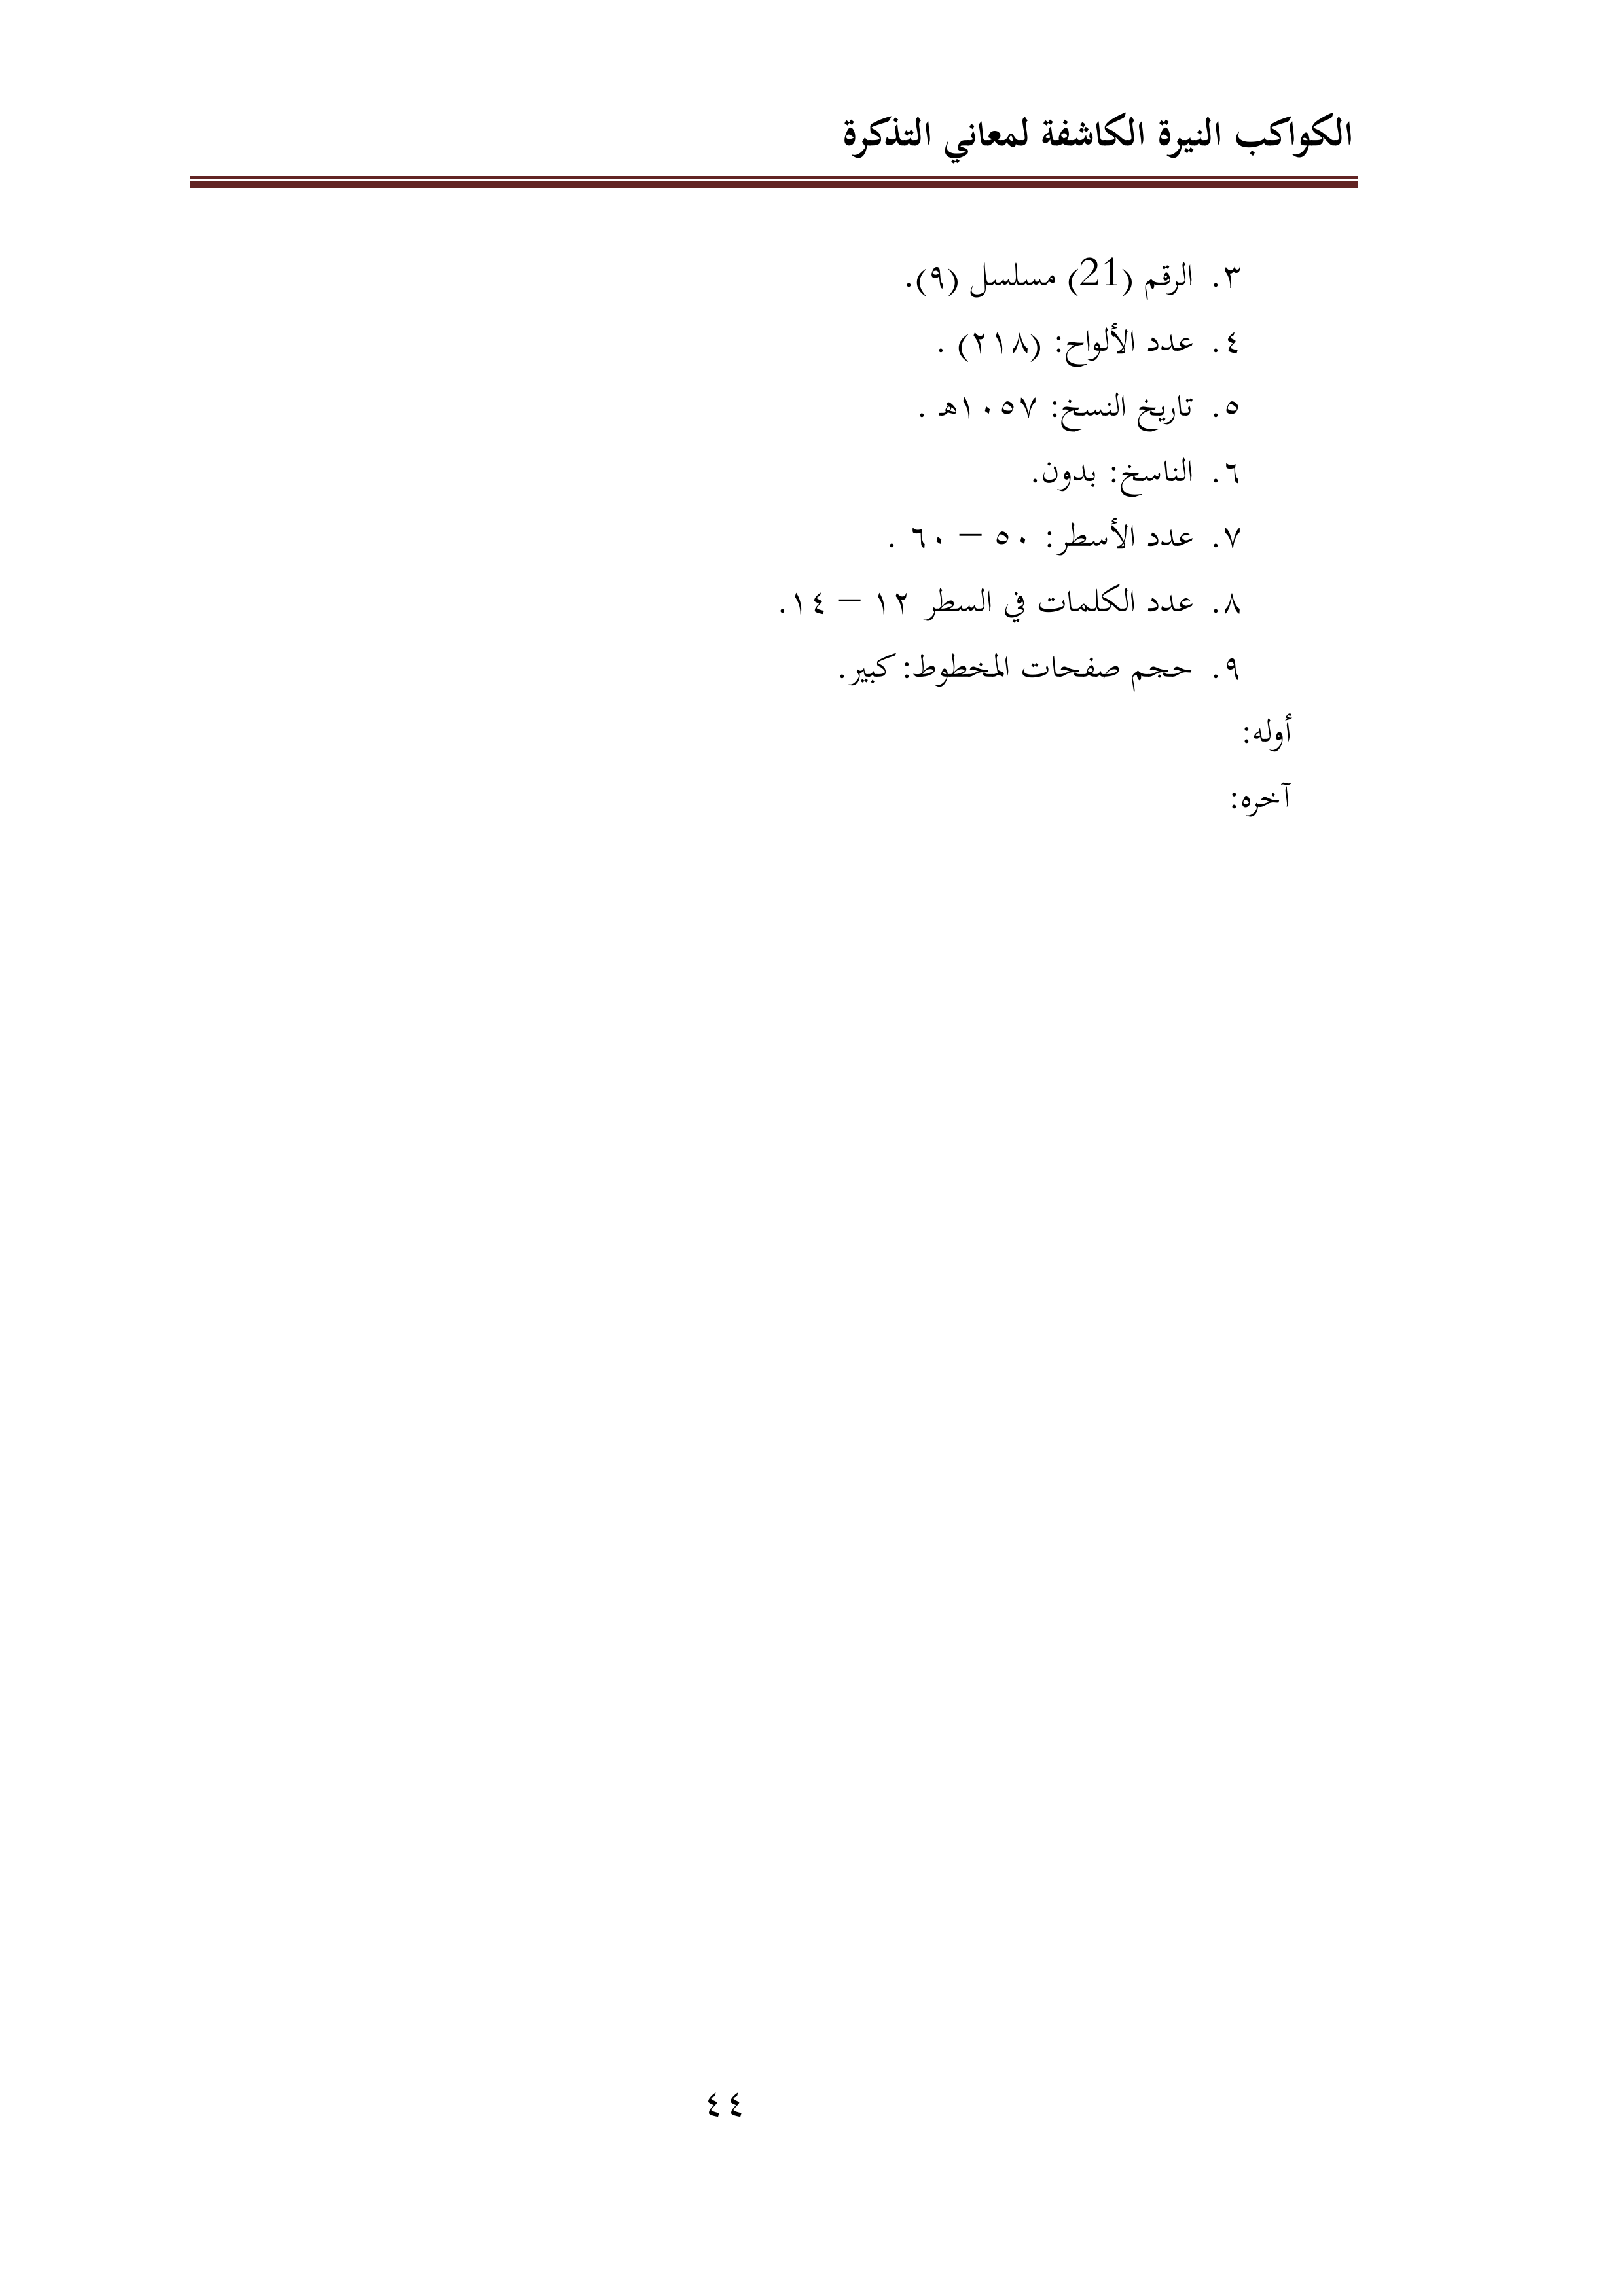 الكواكب النيرة الكاشفة لمعاني التذكرة
٣. الرقم (21) مسلسل (٩).
٤. عدد الألواح: (٢١٨) .
٥. تاريخ النسخ: ١٠٥٧هـ .
٦. الناسخ: بدون.
٧. عدد الأسطر: ٥٠ – ٦٠ .
٨. عدد الكلمات في السطر ١٢ – ١٤.
٩. حجم صفحات المخطوط: كبير.
أوله:
آخره:
٤٤